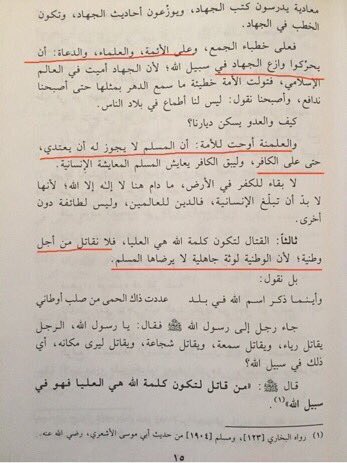 معادية يدرسون كتب الجهاد، ويوزّعون أحاديث الجهاد، وتكون
الخطب في الجهاد.
فعلى خطباء الجمع، وعلى الأئمة، والعلماء، والدعاة: أن
يحرّكوا وازع الجهاد في سبيل الله؛ لأن الجهاد أميت في العالم
الإسلامي، فتولت الأمة خطيئة ما سمع الدهر بمثلها حتى أصبحنا
ندافع، وأصبحنا نقول: ليس لنا أطماع في بلاد الناس.
كيف والعدو يسكن ديارنا؟
والعلمنة أوحت للأمة: أن المسلم لا يجوز له أن يعتدي،
حتى على الكافر، وليبق الكافر يعايش المسلم المعايشة الإنسانية.
لا بقاء للكفر في الأرض، ما دام هنا لا إله إلا الله؛ لأنها
لا بدّ أن تبلّغ الإنسانية، فالدين للعالمين، وليس لطائفة دون
أخرى.
ثالثاً: القتال لتكون كلمة الله هي العليا، فلا نقاتل من أجل
وطنية؛ لأن الوطنية لوثة جاهلية لا يرضاها المسلم.
بل نقول:
وأينما ذكر اسم الله في بلد عددت ذاك الحمى من صلب أوطاني
جاء رجل إلى رسول الله ﷺ فقال: يا رسول الله، الرجل
يقاتل رياء، ويقاتل سمعة، ويقاتل شجاعة، ويقاتل ليرى مكانه، أي
ذلك في سبيل الله؟
قال ﷺ: «من قاتل لتكون كلمة الله هي العليا فهو في
سبيل الله»(١).
(١) رواه البخاري [١٢٣]، ومسلم [١٩٠٤] من حديث أبي موسى الأشعري، رضي الله عنه.
١٥